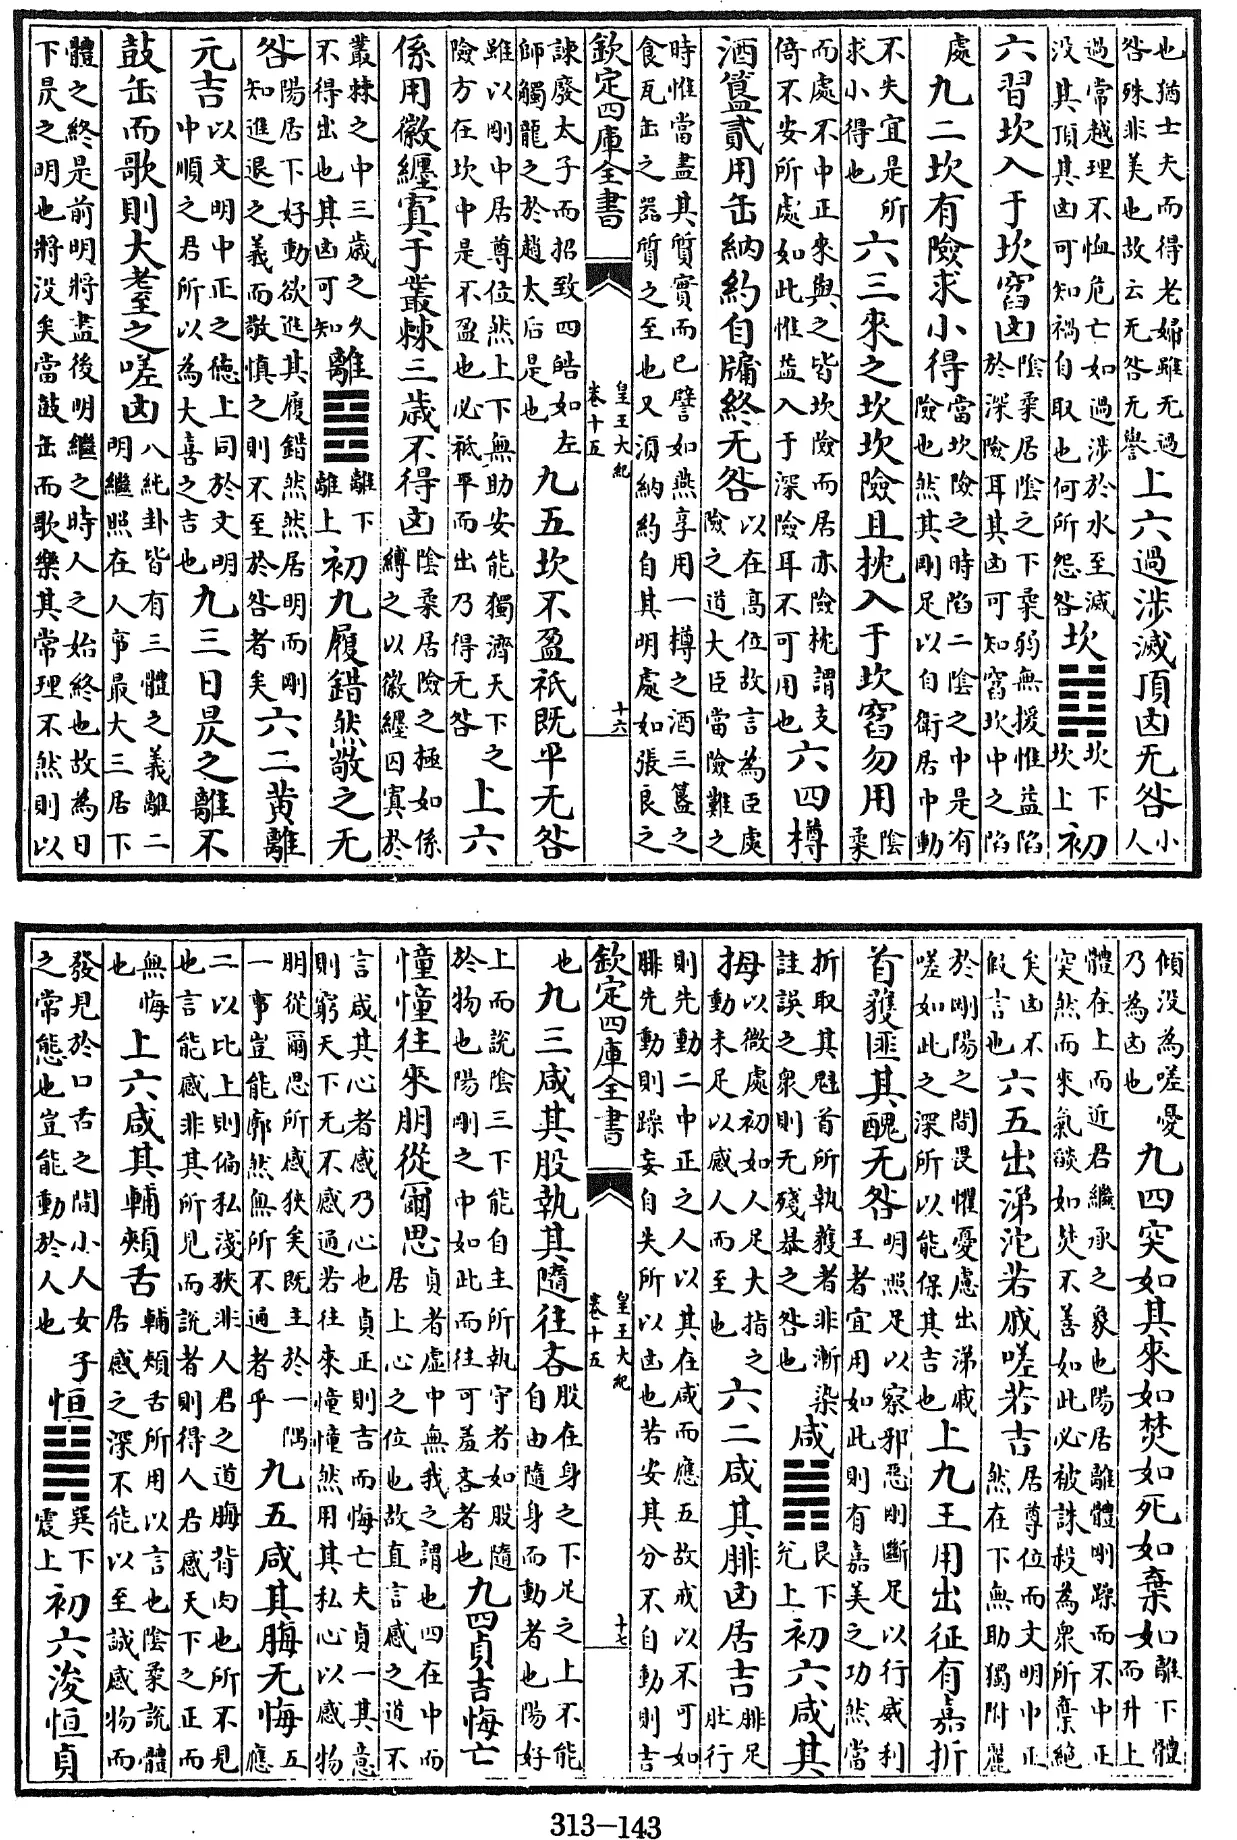 也猶士夫而得老婦雖无過
咎殊非美也故云无咎无譽
上六過涉滅頂凶无咎
小
人
過常越理不恤危亡如過涉於水至滅
没其頂其凶可知禍自取也何所怨咎
坎䷜
坎下
坎上
初
六習坎入于坎窞凶
陰柔居陰之下柔弱無援惟益陷
於深險耳其凶可知窞坎中之陷
處
九二坎有險求小得
當坎險之時陷二陰之中是有
險也然其剛足以自衛居中動
不失宜是所
求小得也
六三來之坎坎險且枕入于坎窞勿用
陰
柔
而處不中正來與之皆坎險而居亦險枕謂支
倚不安所處如此惟益入于深險耳不可用也
六四樽
酒簋貳用缶納約自牖終无咎
以在高位故言為臣處
險之道大臣當險難之
時惟當盡其質實而已譬如燕享用一樽之酒三簋之
食瓦缶之器質之至也又須納約自其明處如張良之
欽定四庫全書
皇王大紀
卷十五
十六
諫廢太子而招致四皓如左
師觸龍之於趙太后是也
九五坎不盈祇既平无咎
雖以剛中居尊位然上下無助安能獨濟天下之
險方在坎中是不盈也必祇平而出乃得无咎
上六
係用徽纆寘于叢棘三歲不得凶
陰柔居險之極如係
縛之以徽纆囚寘於
叢棘之中三歲之久
不得出也其凶可知
離䷝
離下
離上
初九履錯然敬之无
咎
陽居下好動欲進其履錯然然居明而剛
知進退之義而敬慎之則不至於咎者矣
六二黄離
元吉
以文明中正之徳上同於文明
中順之君所以為大喜之吉也
九三日昃之離不
鼓缶而歌則大耋之嗟凶
八純卦皆有三體之義離二
明繼照在人事最大三居下
體之終是前明將盡後明繼之時人之始終也故為日
下昃之明也將没矣當鼓缶而歌樂其常理不然則以
傾没為嗟憂
乃為凶也
九四突如其來如焚如死如棄如
離下體
而升上
體在上而近君繼承之象也陽居離體剛躁而不中正
突然而來氣燄如焚不善如此必被誅殺為衆所棄絶
矣凶不
假言也
六五出涕沱若戚嗟若吉
居尊位而文明中正
然在下無助獨附麗
於剛陽之間畏懼憂慮出涕戚
嗟如此之深所以能保其吉也
上九王用出征有嘉折
首獲匪其醜无咎
明照足以察邪惡剛斷足以行威利
王者宜用如此則有嘉美之功然當
折取其魁首所執獲者非漸染
註誤之衆則无殘暴之咎也
咸䷞
艮下
兊上
初六咸其
拇
以微處初如人足大指之
動未足以感人而至也
六二咸其腓凶居吉
腓足
肚行
則先動二中正之人以其在咸而應五故戒以不可如
腓先動則躁妄自失所以凶也若安其分不自動則吉
欽定四庫全書
皇王大紀
卷十五
十七
也
九三咸其股執其隨往吝
股在身之下足之上不能
自由隨身而動者也陽好
上而說陰三下能自主所執守者如股隨
於物也陽剛之中如此而往可羞吝者也
九四貞吉悔亡
憧憧往來朋從爾思
貞者虛中無我之謂也四在中而
居上心之位也故直言感之道不
言咸其心者感乃心也貞正則吉而悔亡夫貞一其意
則窮天下无不感通若往來憧憧然用其私心以感物
朋從爾思所感狹矣既主於一隅
一事豈能廓然無所不通者乎
九五咸其脢无悔
五
應
二以比上則偏私淺狹非人君之道脢背肉也所不見
也言能感非其所見而說者則得人君感天下之正而
無悔
也
上六咸其輔頰舌
輔頰舌所用以言也陰柔說體
居感之深不能以至誠感物而
發見於口舌之間小人女子
之常態也豈能動於人也
恒䷟
巽下
震上
初六浚恒貞
313-143